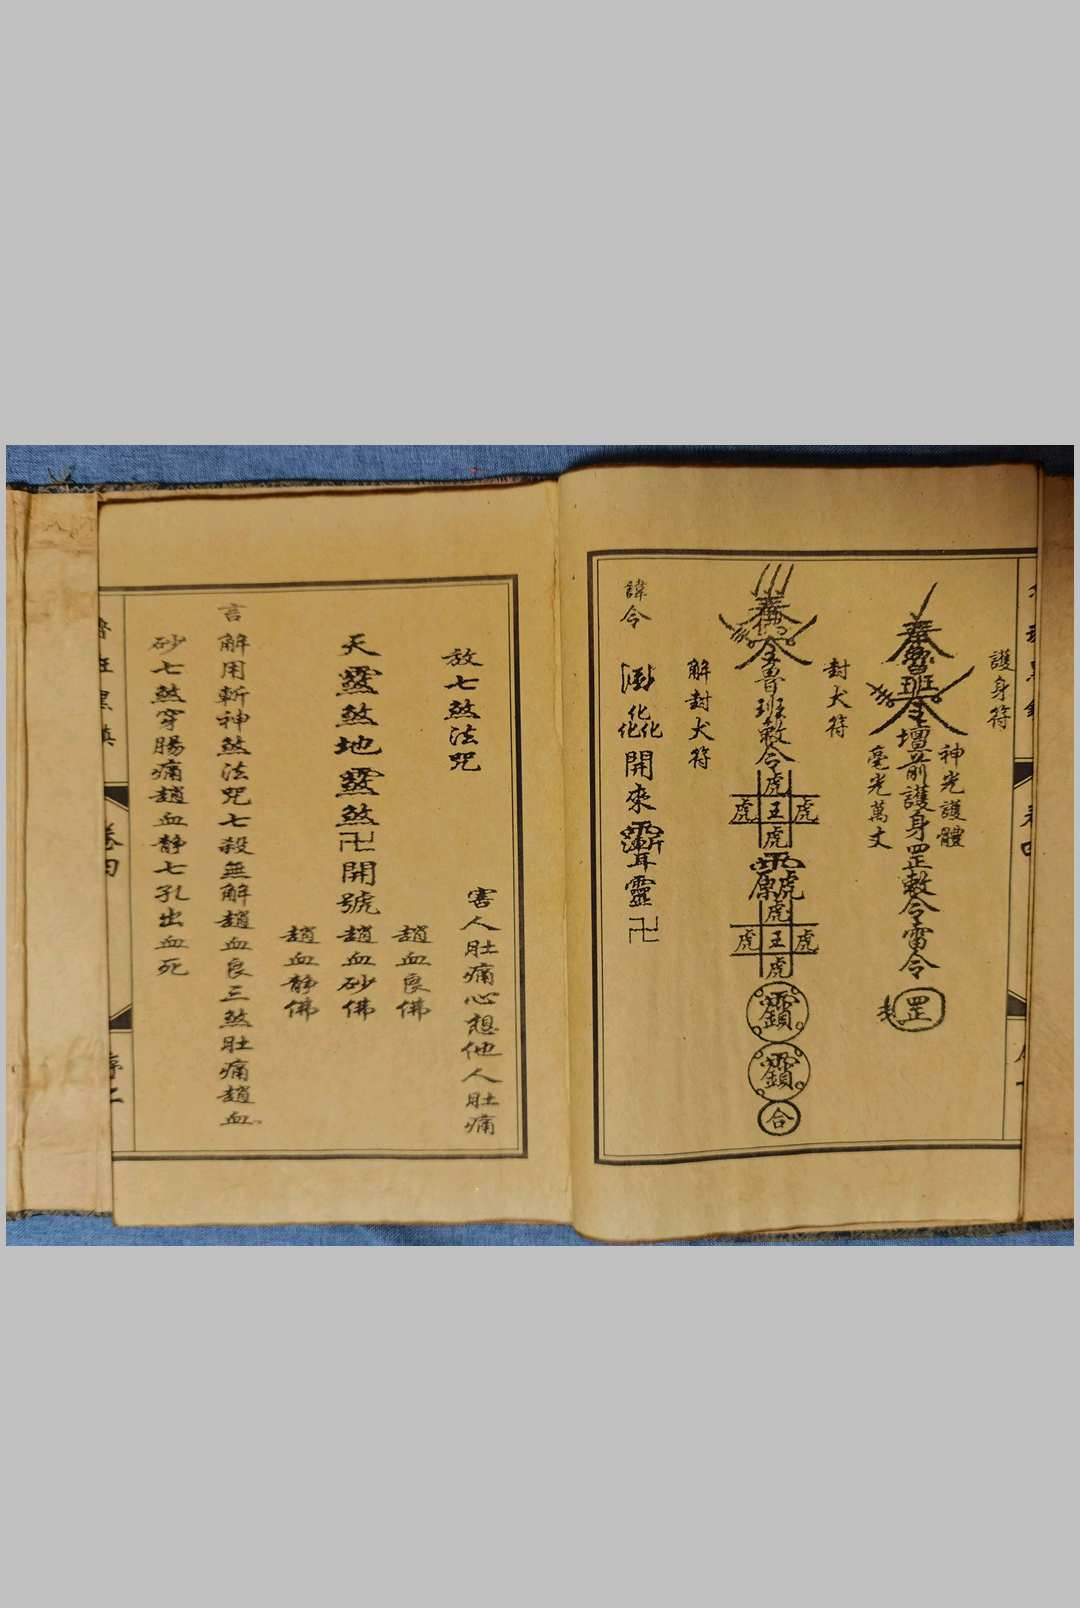 護身符
神光護體
魯班
壇前護身罡敕令雷令
罡
毫光萬丈
封犬符
魯班敕令
虎
虎王虎
虎
虎
虎王虎
虎
合
解封犬符
諱令
開來
靈卍
放七煞法咒
害人肚痛心想他人肚痛
天靈煞地靈煞卍開號
趙血良佛
趙血砂佛
趙血静佛
言解用斬神煞法咒七殺無解趙血良三煞肚痛趙血
砂七煞穿腸痛趙血静七孔出血死
卷四